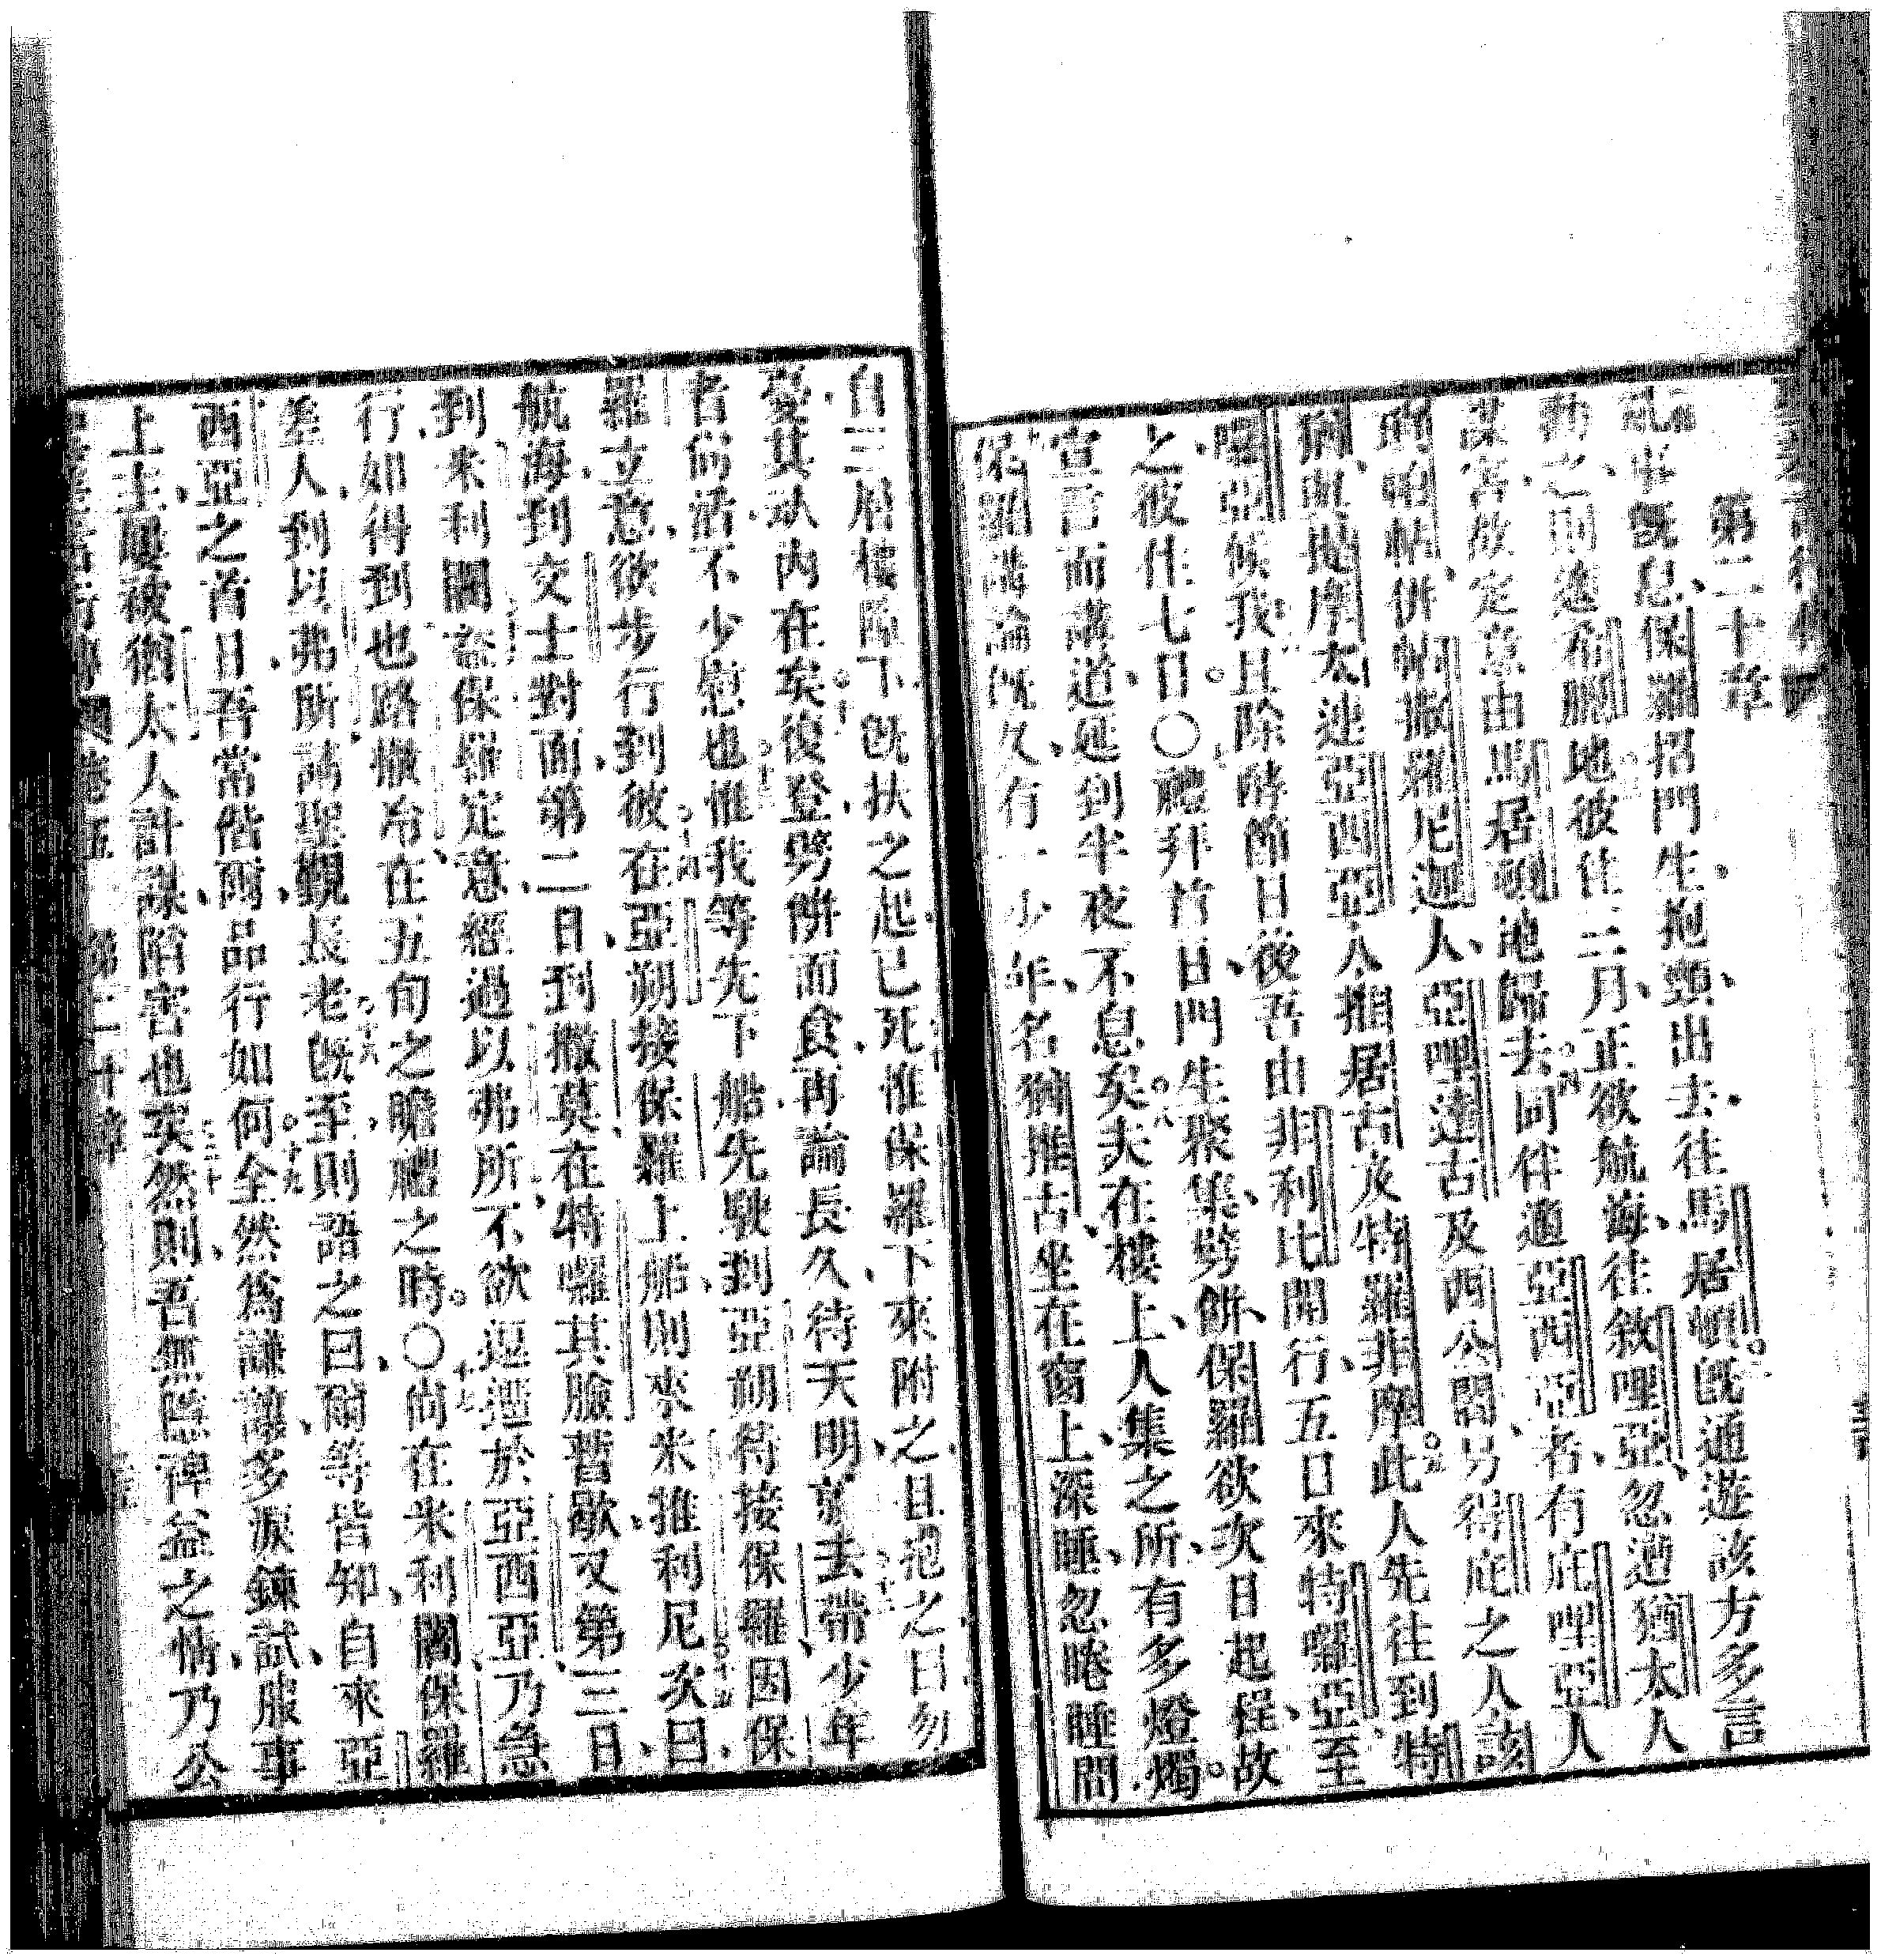 第二十章
亂事旣息保羅招門生抱頸出去往馬居頓旣通遊該方多言
勸之則進希臘地彼住三月正欲航海往敘哩亞忽遭猶太人
謀害故定意由馬居頓地歸去同伴適亞西亞者有庇哩亞人
帖撒羅尼迦人亞哩達古及西公閟另得庇之人該
摩太連亞西亞人推居古及特羅非摩此人先往到特
囉亞候我且除酵節日後吾由非利比開行五日來特囉亞至
之彼住七日〇禮拜首日門生聚集劈餅保羅欲次日起程故
宣言而講道延到半夜不息矣夫在樓上人集之所有多燈燭
保羅講論旣久有一少年名猶推古坐在窗上深睡忽睠睡間
自三層樓隕下旣扶之起已死惟保羅下來附之且抱之曰勿
憂其𤣥內在矣復登劈餅而食再論長久待天明就去帶少年
者尚活不少慰也惟我等先下船先駛到亞朔待接保羅因保
羅立意欲步行到彼在亞朔接保羅上船則來米推利尼次日
航海到交士對面第二日到撒莫在特囉其臉暫歇又第三日
到米利閣蓋保羅定意經過以弗所不欲逗遛於亞西亞乃急
行如得到也路撒冷在五旬之瞻禮之時〇尚在米利閣保羅
差人到以弗所請聖覡長老旣至則語之曰爾等皆知自來亞
西亞之首日吾常偕爾品行如何全然爲謙讓多淚鍊試服事
上主屢被猶太人計謀陷害也矣然則吾無隱裨益之情乃公